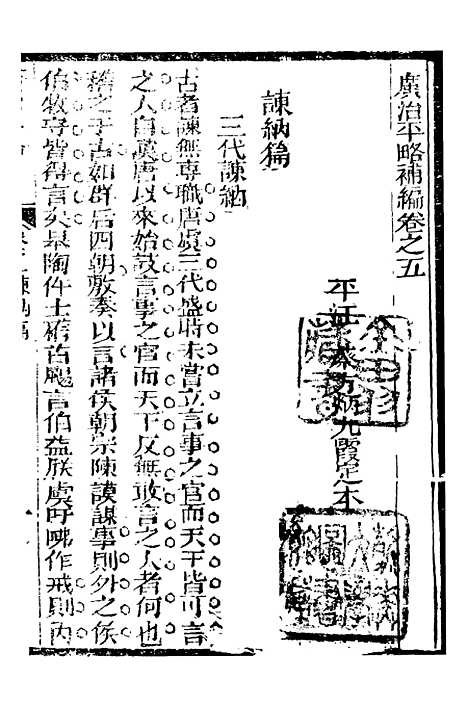 廣治平略補編卷之五
平江 蔡方炳九霞定本
諫納篇
三代諫納
古者諫無專職唐虞三代盛時未嘗立言事之官而天下皆可言
之人自漢唐以來始設言事之官而天下反無敢言之人者何也
稽之于古如群后四朝敷奏以言諸侯朝宗陳謨謀事則外之侯
伯牧守皆得言矣皋陶作士稽首颺言伯益朕虞吁咈作戒則內